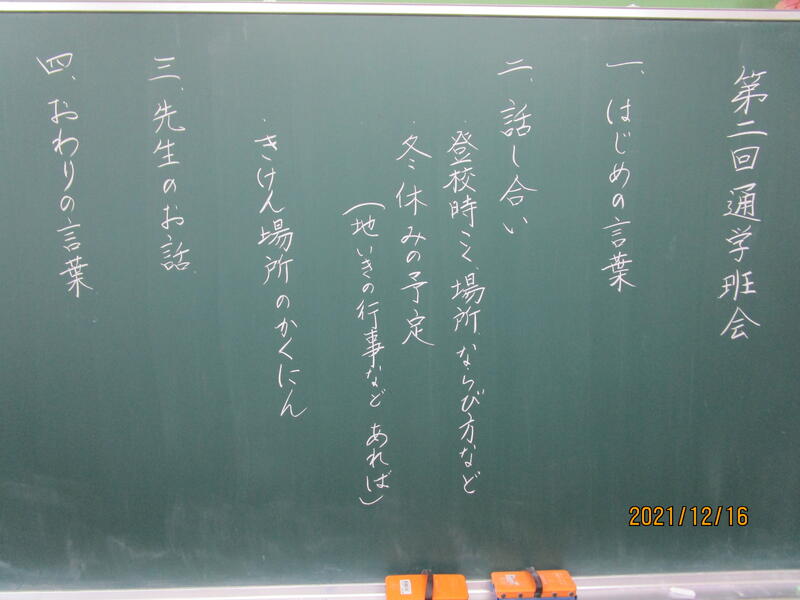 第二回通学班会
一、はじめの言葉
二、話し合い
・登校時こく、場所、ならび方など
・冬休みの予定
(地いきの行事など あれば)
・きけん場所のかくにん
三、先生のお話
四、おわりの言葉
2021/12/16